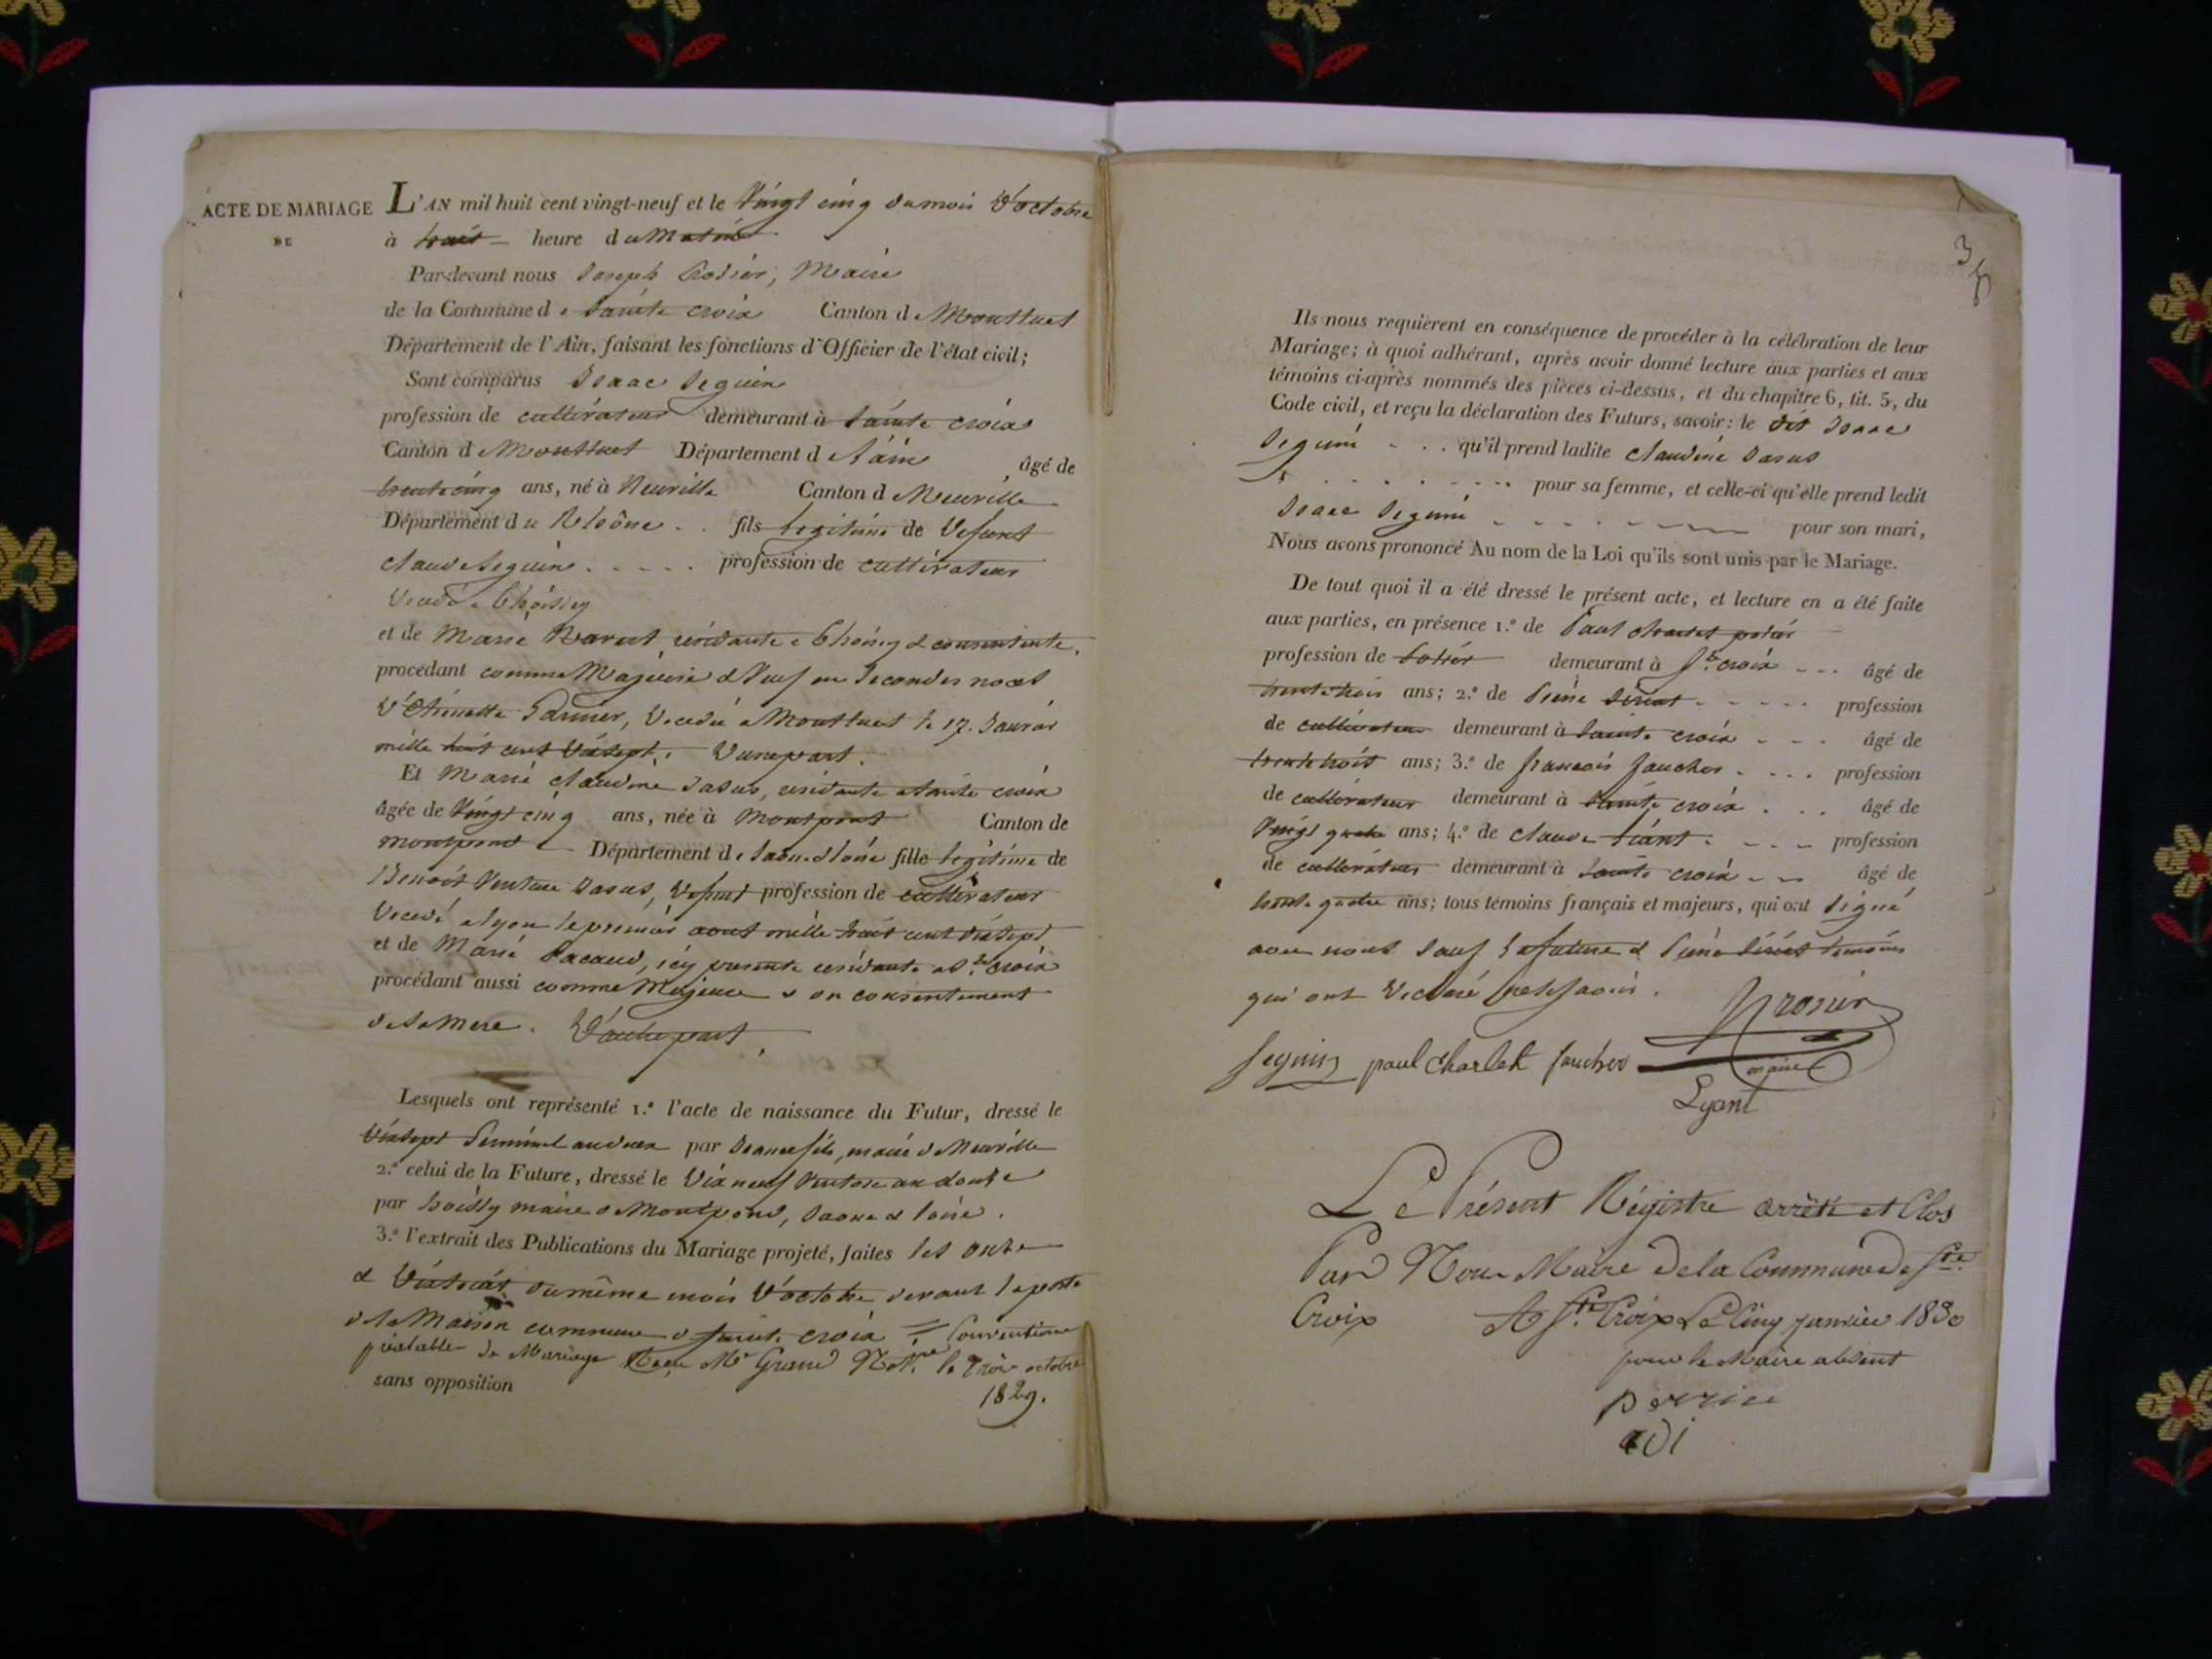 ACTE DE MARIAGE
DE
L'AN mil huit cent vingt-neuf et le Vingt cinq du mois d'octobre
à huit heure du Matin
Par-devant nous Joseph Crosier, Maire
de la Commune de Sainte croix Canton de Montluel
Département de l'Ain, faisant les fonctions d'Officier de l'état civil;
Sont comparus Isaac Seguin
profession de cultivateur demeurant à Sainte croix
Canton de Montluel Département de l'ain âgé de
trente cinq ans, né à Neuville Canton de Neuville
Département du Rhône fils legitime de defunt
claude Seguin profession de cultivateur
decedé a
et de Marie residante a & consentente,
procédant comme Majeur & Veuf en Secondes noces
d'Etiennette decedée a Montluel le 17. Janvier
mille huit cent dixsept. d'une part.
Et Marie claudine Dasus, residante a Sainte croix
âgée de Vingt cinq ans, née à Montpont Canton de
montpont Département de Saone & loire fille legitime de
Benoit Dasus, defunt profession de cultivateur
decedé a lyon le premier aout mille huit cent dixsept
et de Marie Pacaud, icy presente residante a Ste croix
procédant aussi comme Majeure & du consentement
de sa Mere. d'autre part,
Lesquels ont représenté 1.º l'acte de naissance du Futur, dressé le
dixsept an deux par maire de Neuville
2.º celui de la Future, dressé le dix neuf Ventose an douze
par boissy maire de Montpond, Saone & loire.
3.º l'extrait des Publications du Mariage projeté, faites les onze
& dixhuit du même mois d'octobre devant la porte
de la Maison commune de Sainte croix = Conventions
préalables de Mariage Reçu Me Grand Notre le Trois octobre
1829.
sans opposition
38
Ils nous requièrent en conséquence de procéder à la célébration de leur
Mariage; à quoi adhérant, après avoir donné lecture aux parties et aux
témoins ci-après nommés des pièces ci-dessus, et du chapitre 6, tit. 5, du
Code civil, et reçu la déclaration des Futurs, savoir: le dit Isaac
Seguin qu'il prend ladite claudine Dasus
pour sa femme, et celle-ci qu'elle prend ledit
Isaac Seguin pour son mari,
Nous avons prononcé Au nom de la Loi qu'ils sont unis par le Mariage.
De tout quoi il a été dressé le présent acte, et lecture en a été faite
aux parties, en présence 1.º de Paul
profession de demeurant à Ste croix âgé de
trente trois ans; 2.º de Pierre profession
de cultivateur demeurant à Sainte croix âgé de
trente huit ans; 3.º de francois fauchex profession
de cultivateur demeurant à Sainte croix âgé de
Vingt quatre ans; 4.º de claude profession
de cultivateur demeurant à Sainte croix âgé de
trente quatre ans; tous témoins français et majeurs, qui ont signé
avec nous sauf la future & Pierre temoin
qui ont declaré ne le savoir.
Crosier
maire
Seguin paul Charlet
Lyant
Le Présent Régistre arrêté et Clos
Par Nous Maire de la Commune de Ste
Croix A Ste Croix Le Cinq janvier 1830
pour le Maire absent
perrin
adj